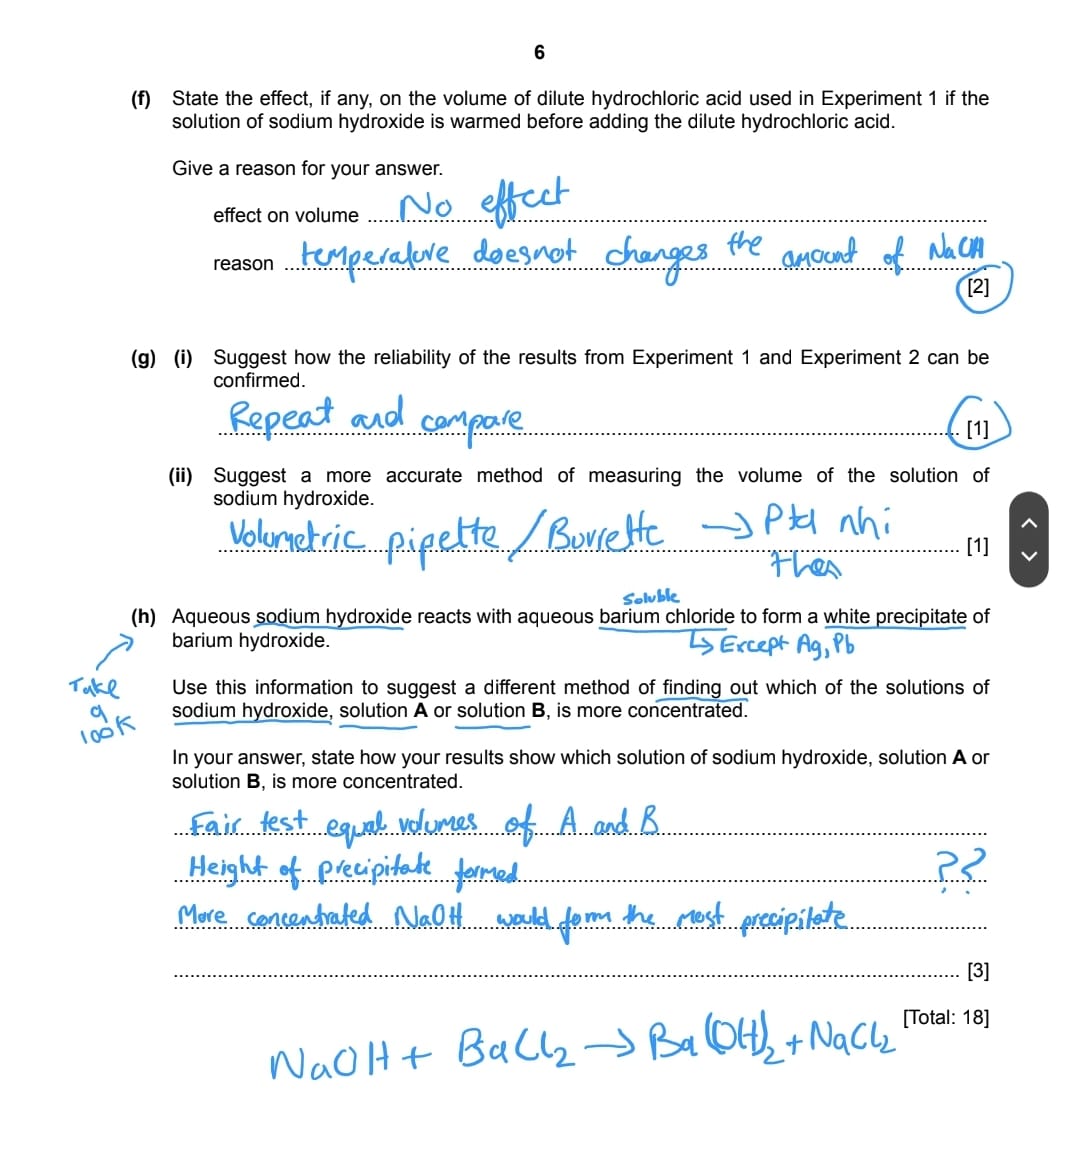 6
(f) State the effect, if any, on the volume of dilute hydrochloric acid used in Experiment 1 if the
solution of sodium hydroxide is warmed before adding the dilute hydrochloric acid.
Give a reason for your answer.
effect on volume No effect
reason temperature doesnot changes the amount of
[2]
(g) (i) Suggest how the reliability of the results from Experiment 1 and Experiment 2 can be
confirmed.
Repeat and compare
[1]
(ii) Suggest a more accurate method of measuring the volume of the solution of
sodium hydroxide.
Volumetric pipette / Burrette → nhi
[1]
Soluble
(h) Aqueous sodium hydroxide reacts with aqueous barium chloride to form a white precipitate of
barium hydroxide.
↳ Except Ag, Pb
Take
a
look
Use this information to suggest a different method of finding out which of the solutions of
sodium hydroxide, solution A or solution B, is more concentrated.
In your answer, state how your results show which solution of sodium hydroxide, solution A or
solution B, is more concentrated.
Fair test equal volumes of A and B
Height of precipitate formed ??
More concentrated NaOH would form the most precipitate
[3]
[Total: 18]
NaOH + BaCl2 → Ba(OH)2 + NaCl2